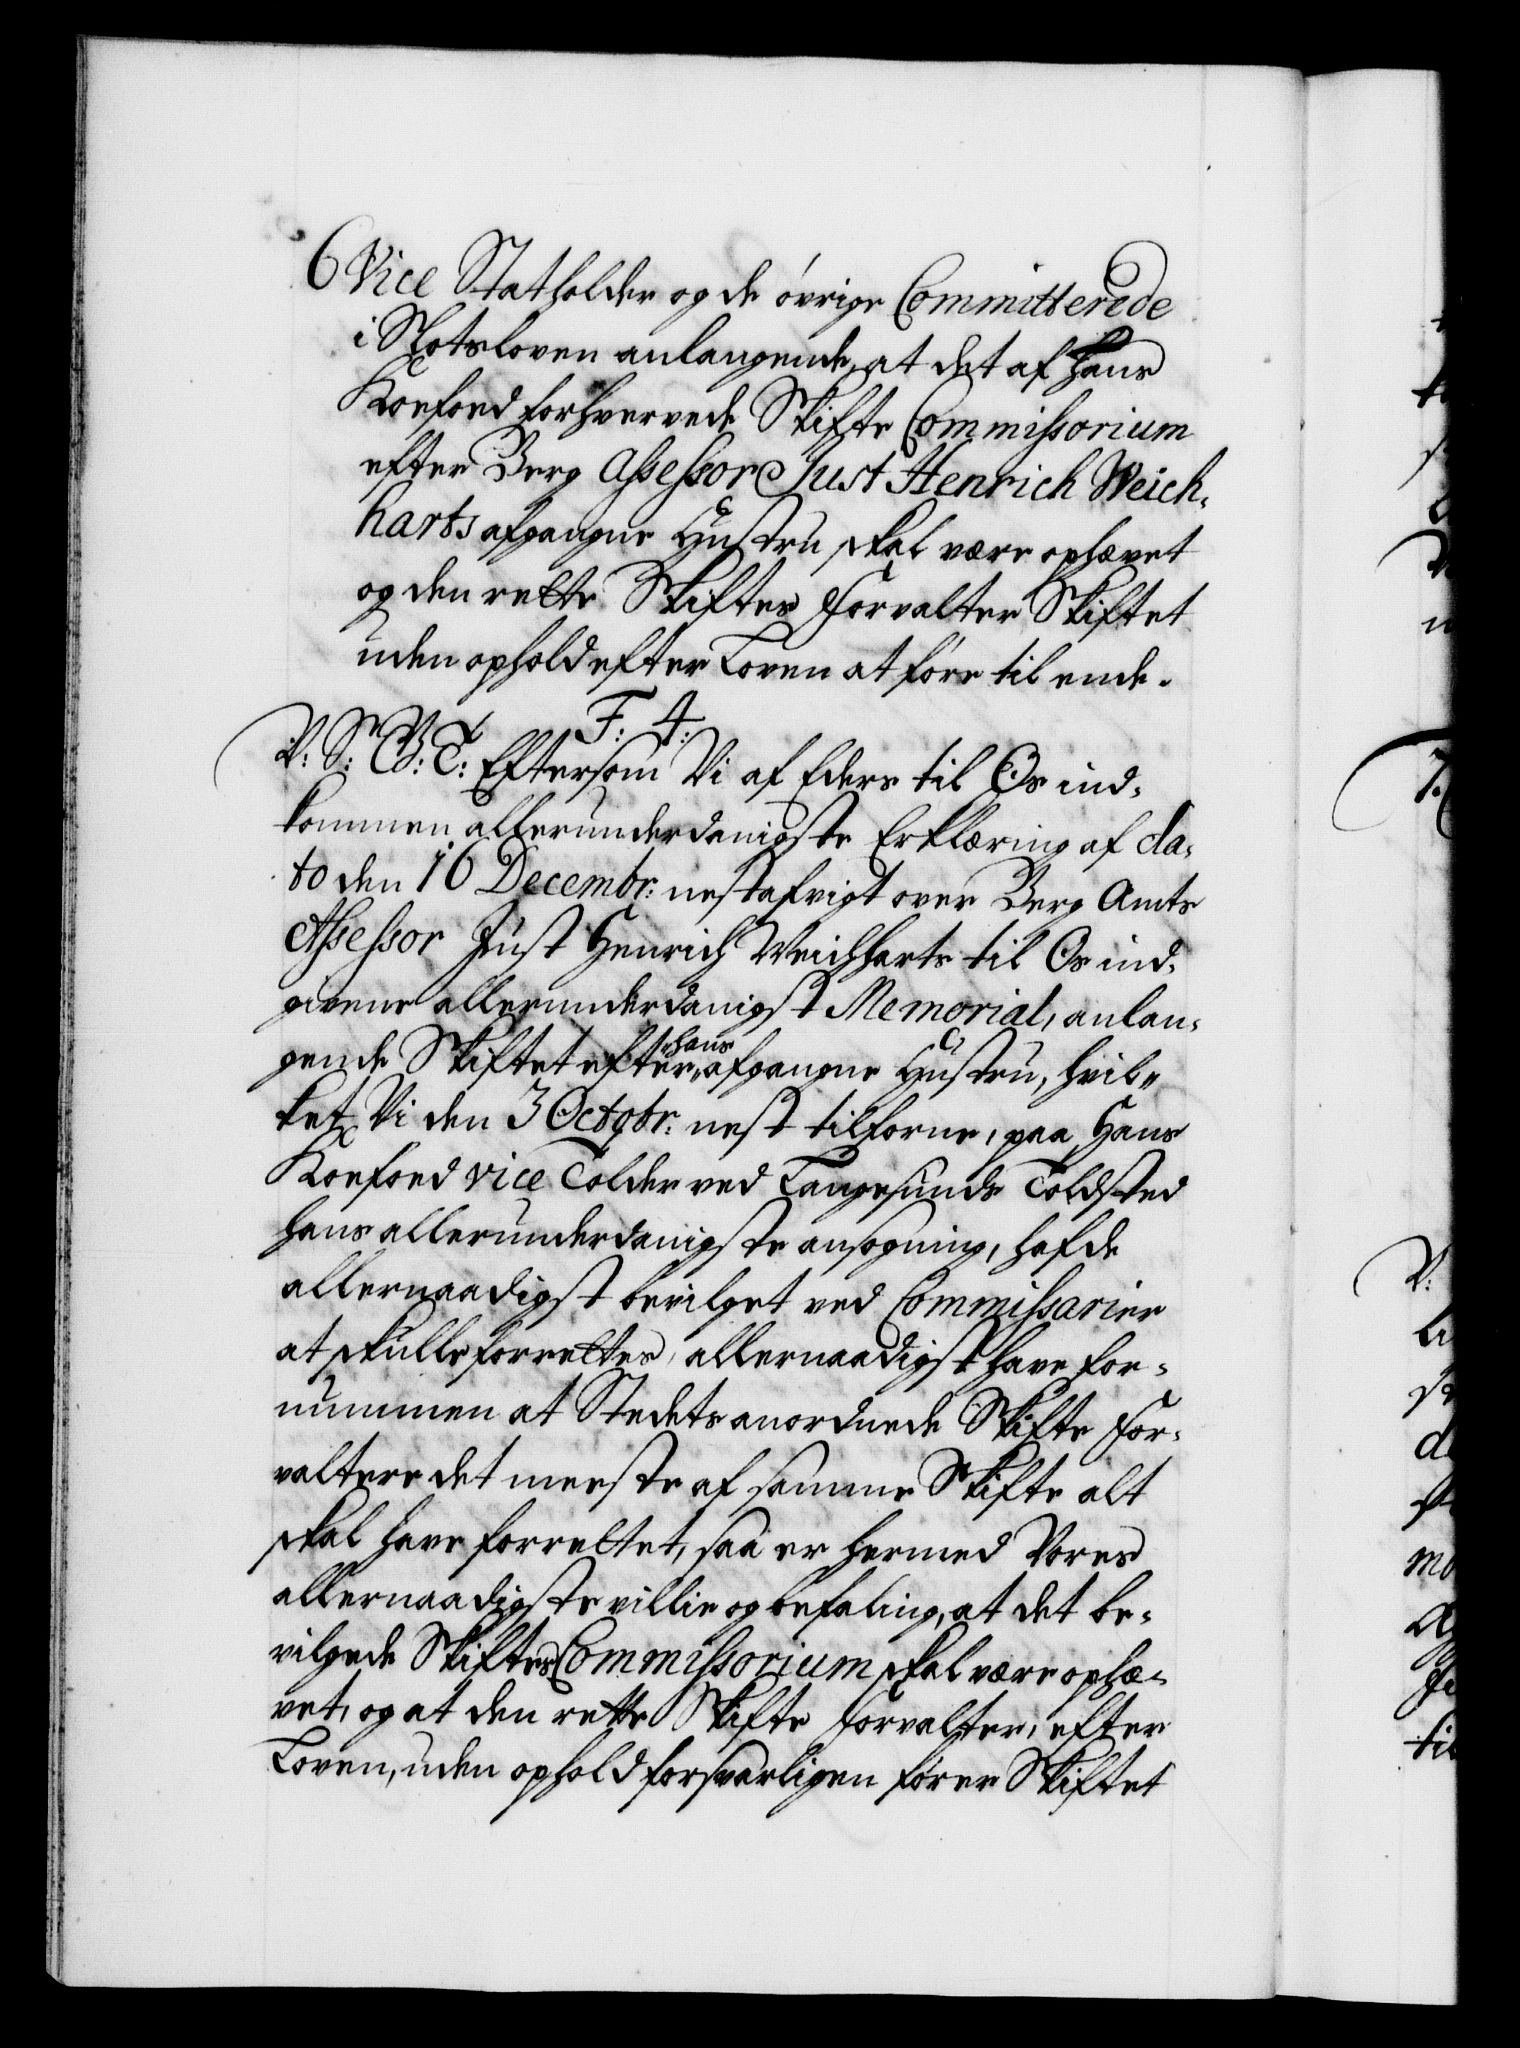 6 Vice Statholder og de øvrige Committerede
i Slotsloven anlangende, at det af Hans
Koefoed forhvervede Skifte Commissorium
efter Berg Assessor Just Henrich Weich-
harts afgangne Hustru skal være ophævet
og den rette Skiftes Forvalter Skiftet
uden ophold efter Loven at føre til ende.
F: 4.
V: S: G: T: Eftersom Vi af Eders til Os ind-
kommen allerunderdanigste Erklæring af da-
to den 16 Decembr: nestafvigt over Berg Amts
Assessor Just Henrich Weichharts til Os ind-
givene allerunderdanigst Memorial, anlan-
gende Skiftet efter hans afgangne Hustru, hvil-
ket Vi den 3 Octobr: nest tilforne, paa Hans
Koefoed Vice Tolder ved Langesunds Toldsted
hans allerunderdanigste ansøgning, hafde
allernaadigst bevilget ved Commissarier
at skulle forrettes, allernaadigst have for-
nummen at Stedets anordnede Skifte For-
valtere det meeste af samme Skifte alt
skal have forrettet, saa er hermed Vores
allernaadigste villie og befaling, at det be-
vilgede Skiftes Commissorium skal være ophæ-
vet, og at den rette Skifte Forvalter, efter
Loven, uden ophold forsvarligen fører Skiftet